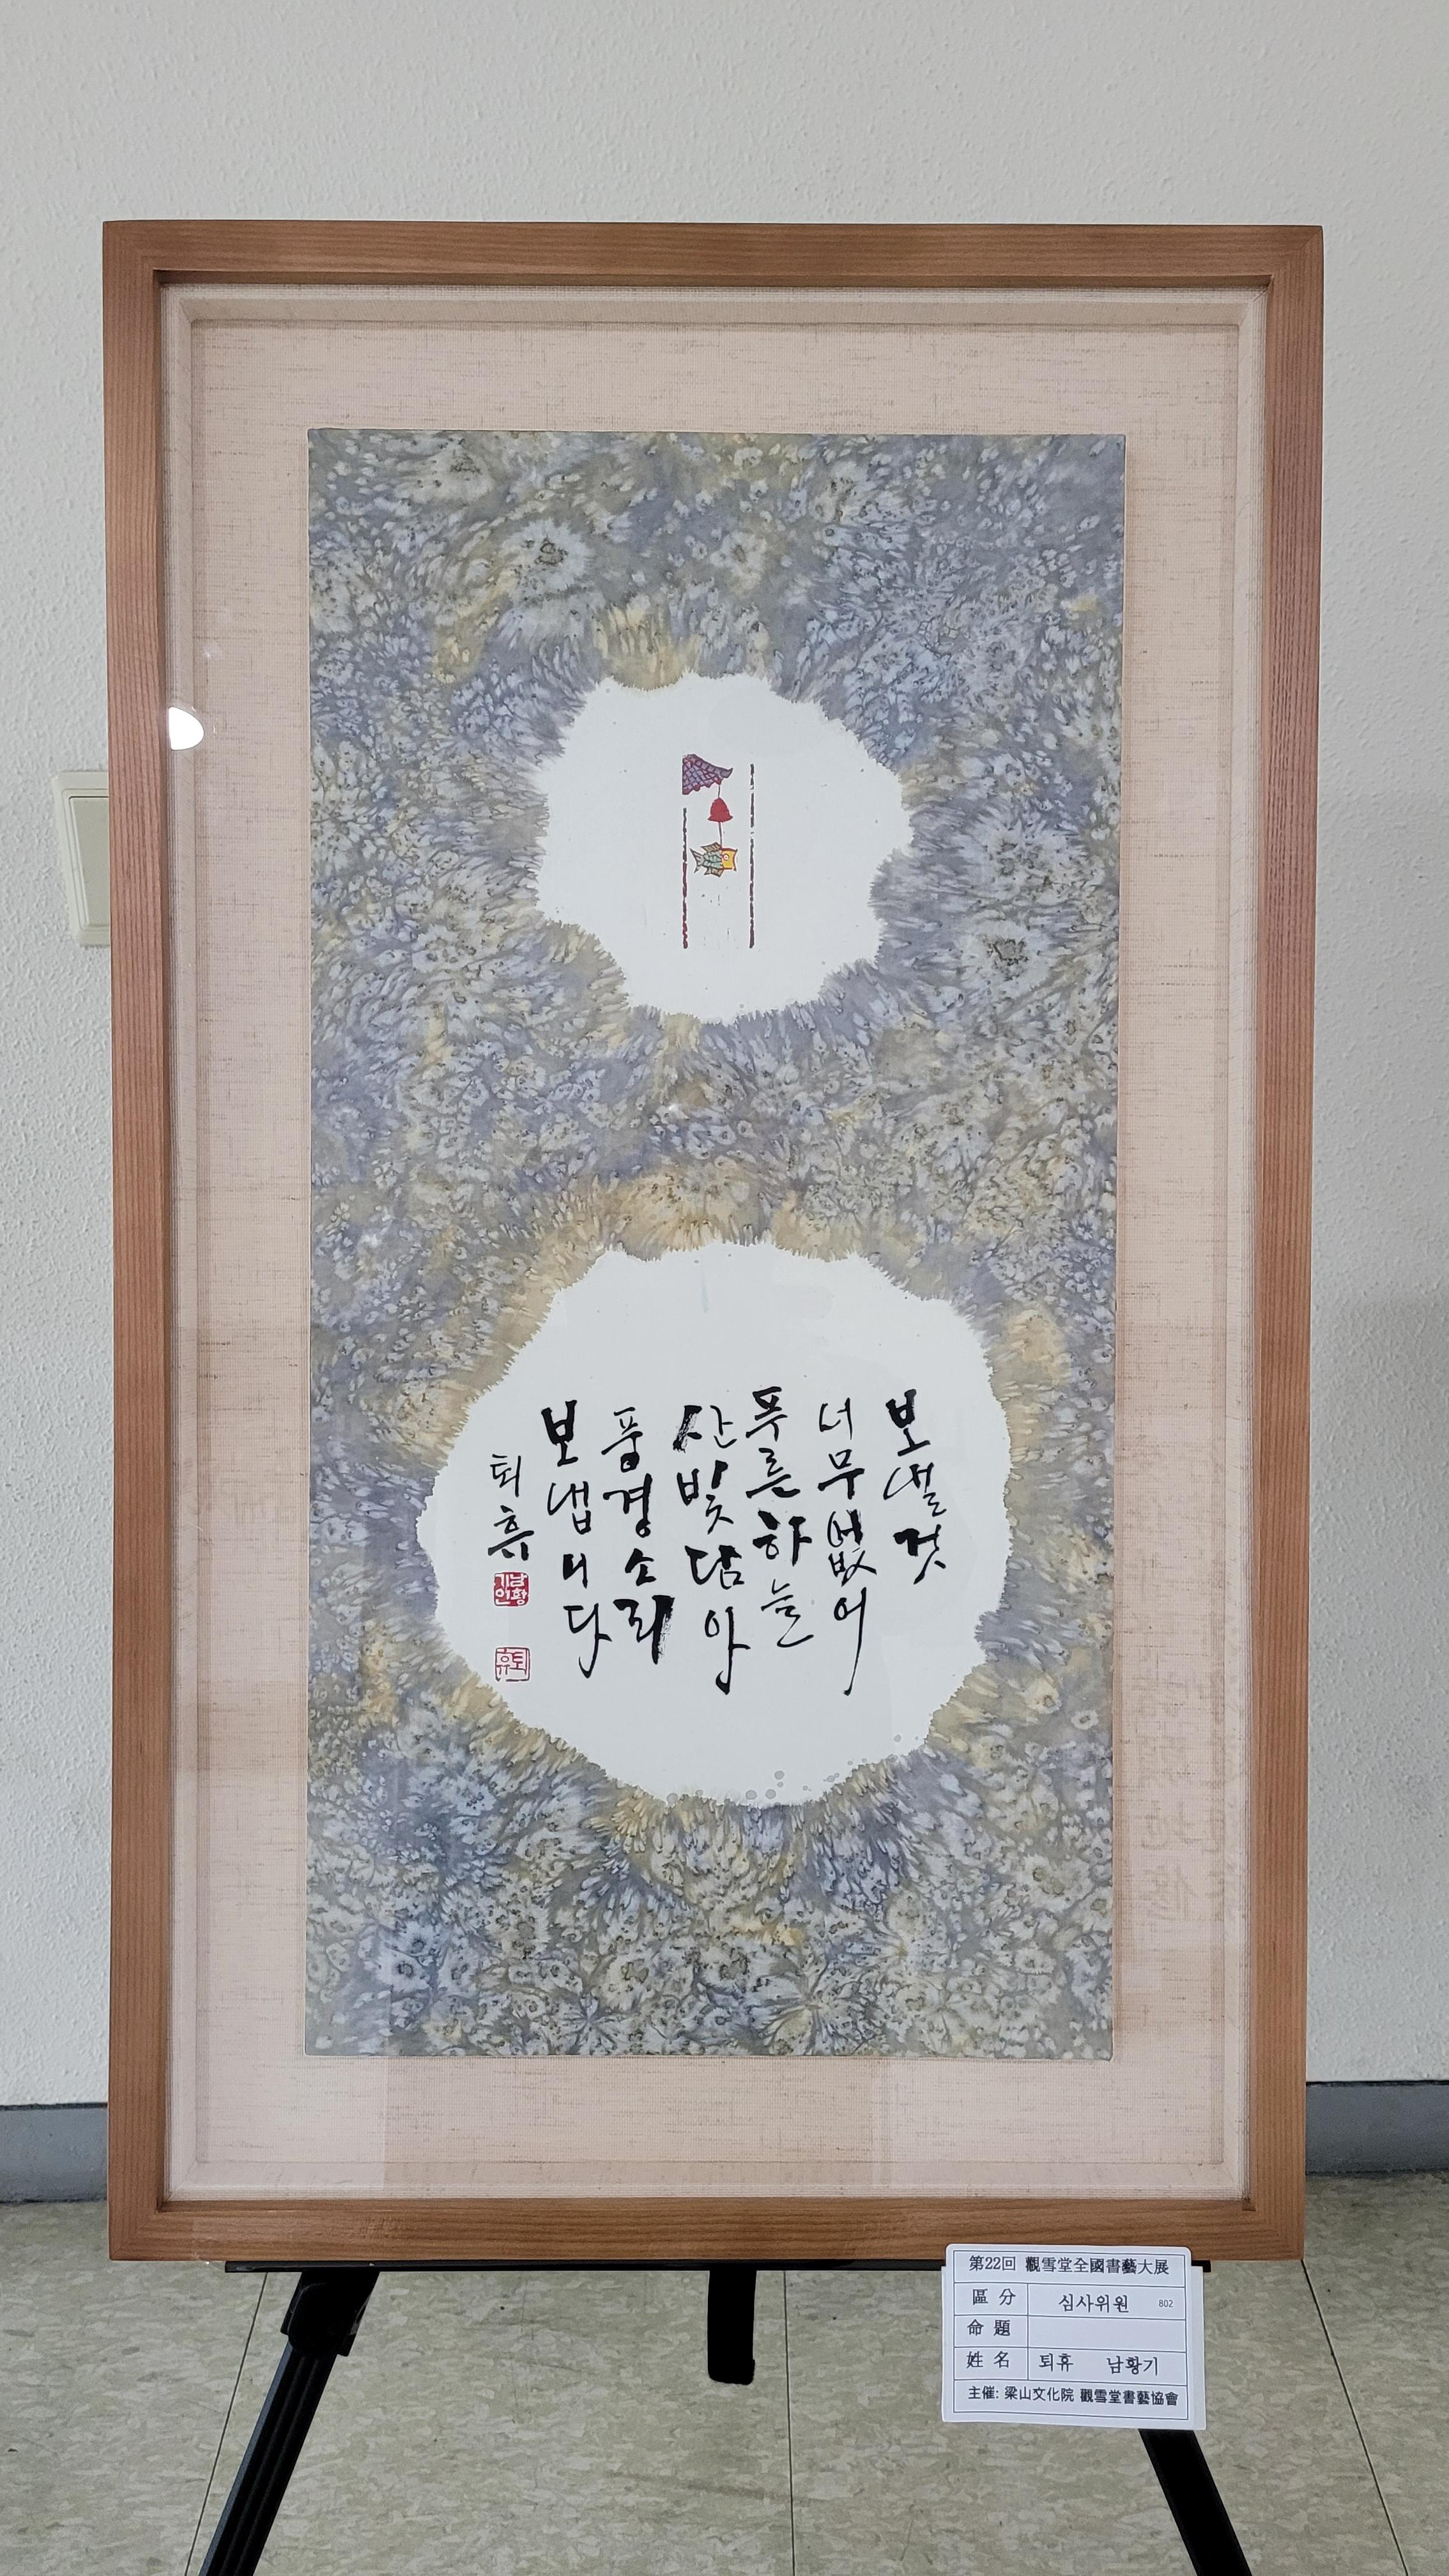 보낼것
너무없어
푸른하늘
산빛담아
풍경소리
보냅니다
퇴휴
남황기인
퇴휴
第22回 觀雪堂全國書藝大展
區 分 심사위원 802
命 題
姓 名 퇴휴 남황기
主催: 梁山文化院 觀雪堂書藝協會